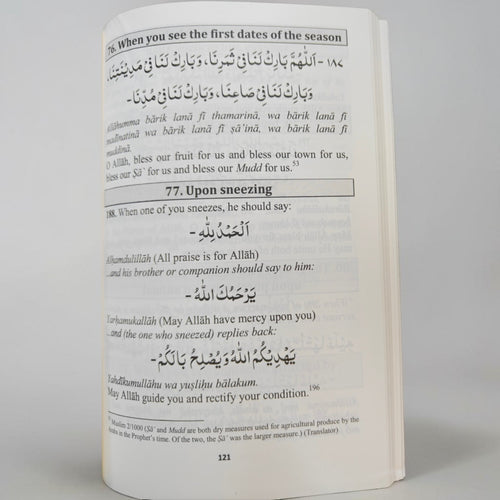 76. When you see the first dates of the season
١٨٧ - اَللّٰهُمَّ بَارِكْ لَنَا فِيْ ثَمَرِنَا، وَبَارِكْ لَنَا فِيْ مَدِيْنَتِنَا،
وَبَارِكْ لَنَا فِيْ صَاعِنَا، وَبَارِكْ لَنَا فِيْ مُدِّنَا -
Allāhumma bārik lanā fī thamarinā, wa bārik lanā fī
madīnatinā wa bārik lanā fī ṣā'inā, wa bārik lanā fī
muddinā.
O Allāh, bless our fruit for us and bless our town for us,
bless our Ṣā' for us and bless our Mudd for us.53
77. Upon sneezing
188. When one of you sneezes, he should say:
اَلْحَمْدُ لِلّٰهِ -
Alhamdulillāh (All praise is for Allāh)
...and his brother or companion should say to him:
يَرْحَمُكَ اللّٰهُ -
Yarḥamukallāh (May Allāh have mercy upon you)
...and (the one who sneezed) replies back:
يَهْدِيْكُمُ اللّٰهُ وَيُصْلِحُ بَالَكُمْ -
Yahdīkumullāhu wa yuṣliḥu bālakum.
May Allāh guide you and rectify your condition.196
Muslim 2/1000 (Ṣā' and Mudd are both dry measures used for agricultural produce by the
Arabs in the Prophet's time. Of the two, the Ṣā' was the larger measure.) (Translator)
121